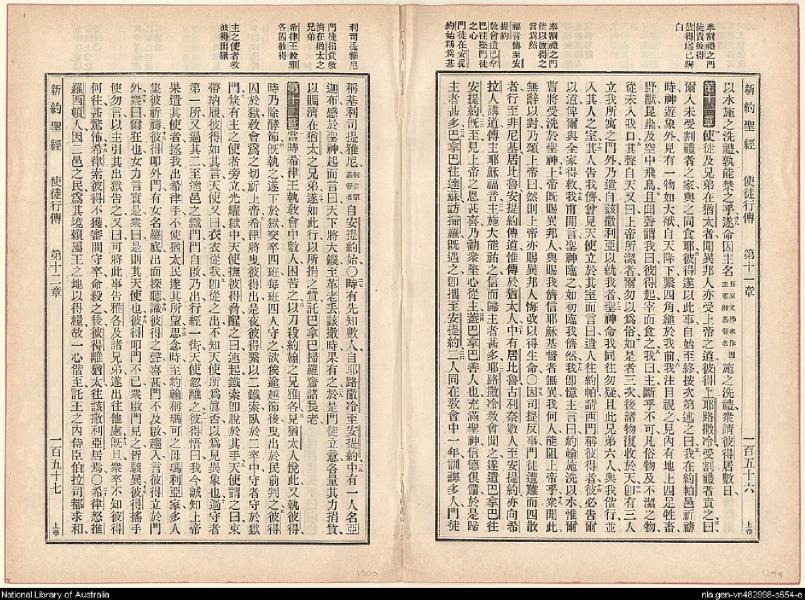 新約聖經 使徒行傳 第十一章 一百五十六 上帝
以水施之洗禮孰能禁之乎遂命因主名施之洗禮眾請彼得居數日
使徒及兄弟在猶太者聞異邦人亦受上帝之道彼得上耶路撒冷受割禮者責之曰
爾入未受割禮者之家與之同食耶彼得遂以此事自始至終按次第述之曰我在約帕邑祈禱
時神遊象外見有一物如大布自天降下繫四角縋於我前我注目視之見內有地上四足牲畜
野獸昆蟲及空中飛鳥且聞聲謂我曰彼得起宰而食之我曰主歟不可凡俗物及不潔之物
從未入我口其聲自天又曰上帝所潔者爾勿以為俗如是者三次後諸物復收於天即有三人
立我所寓之門外乃遣自該撒利亞以就我者聖神命我同往勿疑且此兄弟六人與我偕行並
入其人之室其人告我儕曾見天使立於其室而言曰遣人往約帕請西門稱彼得者彼必告爾
以道俾爾與全家得救我甫開言聖神臨之如初臨我儕然我即憶主言曰約翰施洗以水惟爾
曹將受洗於聖神上帝既賜異邦人與賜我儕信耶穌基督者無異我何人能阻上帝乎眾聞此
無辭以對乃頌上帝曰然則上帝亦賜異邦人悔改以得生命
者行至非尼基居比魯安提約傳道惟傳於猶太人中有居比魯古利奈數人至安提約亦向希
拉人講道傳主耶穌福音主施大能助之信而歸主者甚多耶路撒冷教會聞之遂遣巴拿巴往
安提約既至見上帝之恩甚喜乃勸眾堅心從主蓋巴拿巴善人也充滿聖神信德俱備於是歸
主者甚多巴拿巴往達蘇訪掃羅既遇之即攜至安提約二人同在教會中一年訓誨多人門徒
稱基利司提雅尼自安提約始○時有先知數人自耶路撒冷至安提約中有一人名亞
迦布感於聖神起而言曰天下將大饑至革老丟該撒時果有之於是門徒立意各量其力捐貲
以賙濟在猶太之兄弟遂如此行以所捐之貲託巴拿巴掃羅齎諸長老
當時希律王執教會中數人困苦之以刀殺約翰之兄雅各見猶太人悅此又執彼得
時乃除酵節既執之遂下於獄交四班每班四人守之欲俟逾越節後曳出於民前判之彼得
囚於獄教會為之切祈上帝希律將曳彼得出是夜彼得繫以二鐵索臥於二卒中守者守於獄
門倏有主之使者旁立光耀獄中天使撫彼得脅醒之曰速起鐵索即脫於其手天使謂之曰束
帶納履彼得如其言天使又曰衣衣從我即從之出不知天使所為真否以為見異象也過守者
第一所又過其二至通邑之鐵門門自啟乃出行經一街天使忽離之彼得悟曰我今誠知上帝
果遣其使者拯我出希律手不使猶太民遂其所望思念時至約翰稱瑪可之母瑪利亞家多人
集彼祈禱彼得叩外門有女名羅底出而探聽識彼得之聲喜甚門不及啟趨入言彼得立於門
外眾曰爾狂也女力言實是眾曰是則其天使也彼得叩門不已眾啟門見之皆駭異彼得搖手
使勿言以主引其出獄告之又曰可將此事告雅各及諸兄弟遂出往他處既旦眾卒不知彼得
何往甚驚惶希律索彼得不獲審問守卒命殺之後彼得離猶太往該撒利亞居焉○希律怒推
羅西頓人因二邑之民為其境賴屬王之地以得糧故一心偕至託王之內侍臣伯拉司都求和
新約聖經 使徒行傳 第十二章 一百五十七 上帝
National Library of Australia
nla.gen-vn482998-s654-e